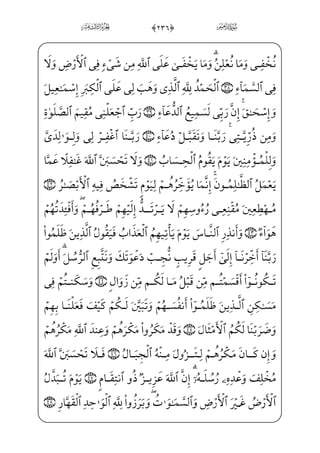 ﴿٢٣٦﴾
نُخْفِى وَمَا نُعْلِنُ ۗ وَمَا يَخْفَىٰ عَلَى ٱللَّهِ مِن شَىْءٍ فِى ٱلْأَرْضِ وَلَا
فِى ٱلسَّمَآءِ ٣٨ ٱلْحَمْدُ لِلَّهِ ٱلَّذِى وَهَبَ لِى عَلَى ٱلْكِبَرِ إِسْمَـٰعِيلَ
وَإِسْحَـٰقَ ۚ إِنَّ رَبِّى لَسَمِيعُ ٱلدُّعَآءِ ٣٩ رَبِّ ٱجْعَلْنِى مُقِيمَ ٱلصَّلَوٰةِ
وَمِن ذُرِّيَّتِى ۚ رَبَّنَا وَتَقَبَّلْ دُعَآءِ ٤٠ رَبَّنَا ٱغْفِرْ لِى وَلِوَٰلِدَىَّ
وَلِلْمُؤْمِنِينَ يَوْمَ يَقُومُ ٱلْحِسَابُ ٤١ وَلَا تَحْسَبَنَّ ٱللَّهَ غَـٰفِلًا عَمَّا
يَعْمَلُ ٱلظَّـٰلِمُونَ ۚ إِنَّمَا يُؤَخِّرُهُمْ لِيَوْمٍ تَشْخَصُ فِيهِ ٱلْأَبْصَـٰرُ ٤٢
مُهْطِعِينَ مُقْنِعِى رُءُوسِهِمْ لَا يَرْتَدُّ إِلَيْهِمْ طَرْفُهُمْ ۖ وَأَفْـِٔدَتُهُمْ
هَوَآءٌ ٤٣ وَأَنذِرِ ٱلنَّاسَ يَوْمَ يَأْتِيهِمُ ٱلْعَذَابُ فَيَقُولُ ٱلَّذِينَ ظَلَمُوا۟
رَبَّنَآ أَخِّرْنَآ إِلَىٰٓ أَجَلٍ قَرِيبٍ نُّجِبْ دَعْوَتَكَ وَنَتَّبِعِ ٱلرُّسُلَ ۗ أَوَلَمْ
تَكُونُوٓا۟ أَقْسَمْتُم مِّن قَبْلُ مَا لَكُم مِّن زَوَالٍ ٤٤ وَسَكَنتُمْ فِى
مَسَـٰكِنِ ٱلَّذِينَ ظَلَمُوٓا۟ أَنفُسَهُمْ وَتَبَيَّنَ لَكُمْ كَيْفَ فَعَلْنَا بِهِمْ
وَضَرَبْنَا لَكُمُ ٱلْأَمْثَالَ ٤٥ وَقَدْ مَكَرُوا۟ مَكْرَهُمْ وَعِندَ ٱللَّهِ مَكْرُهُمْ
وَإِن كَانَ مَكْرُهُمْ لِتَزُولَ مِنْهُ ٱلْجِبَالُ ٤٦ فَلَا تَحْسَبَنَّ ٱللَّهَ
مُخْلِفَ وَعْدِهِۦ رُسُلَهُۥٓ ۗ إِنَّ ٱللَّهَ عَزِيزٌ ذُو ٱنتِقَامٍ ٤٧ يَوْمَ تُبَدَّلُ
ٱلْأَرْضُ غَيْرَ ٱلْأَرْضِ وَٱلسَّمَـٰوَٰتُ ۖ وَبَرَزُوا۟ لِلَّهِ ٱلْوَٰحِدِ ٱلْقَهَّارِ ٤٨